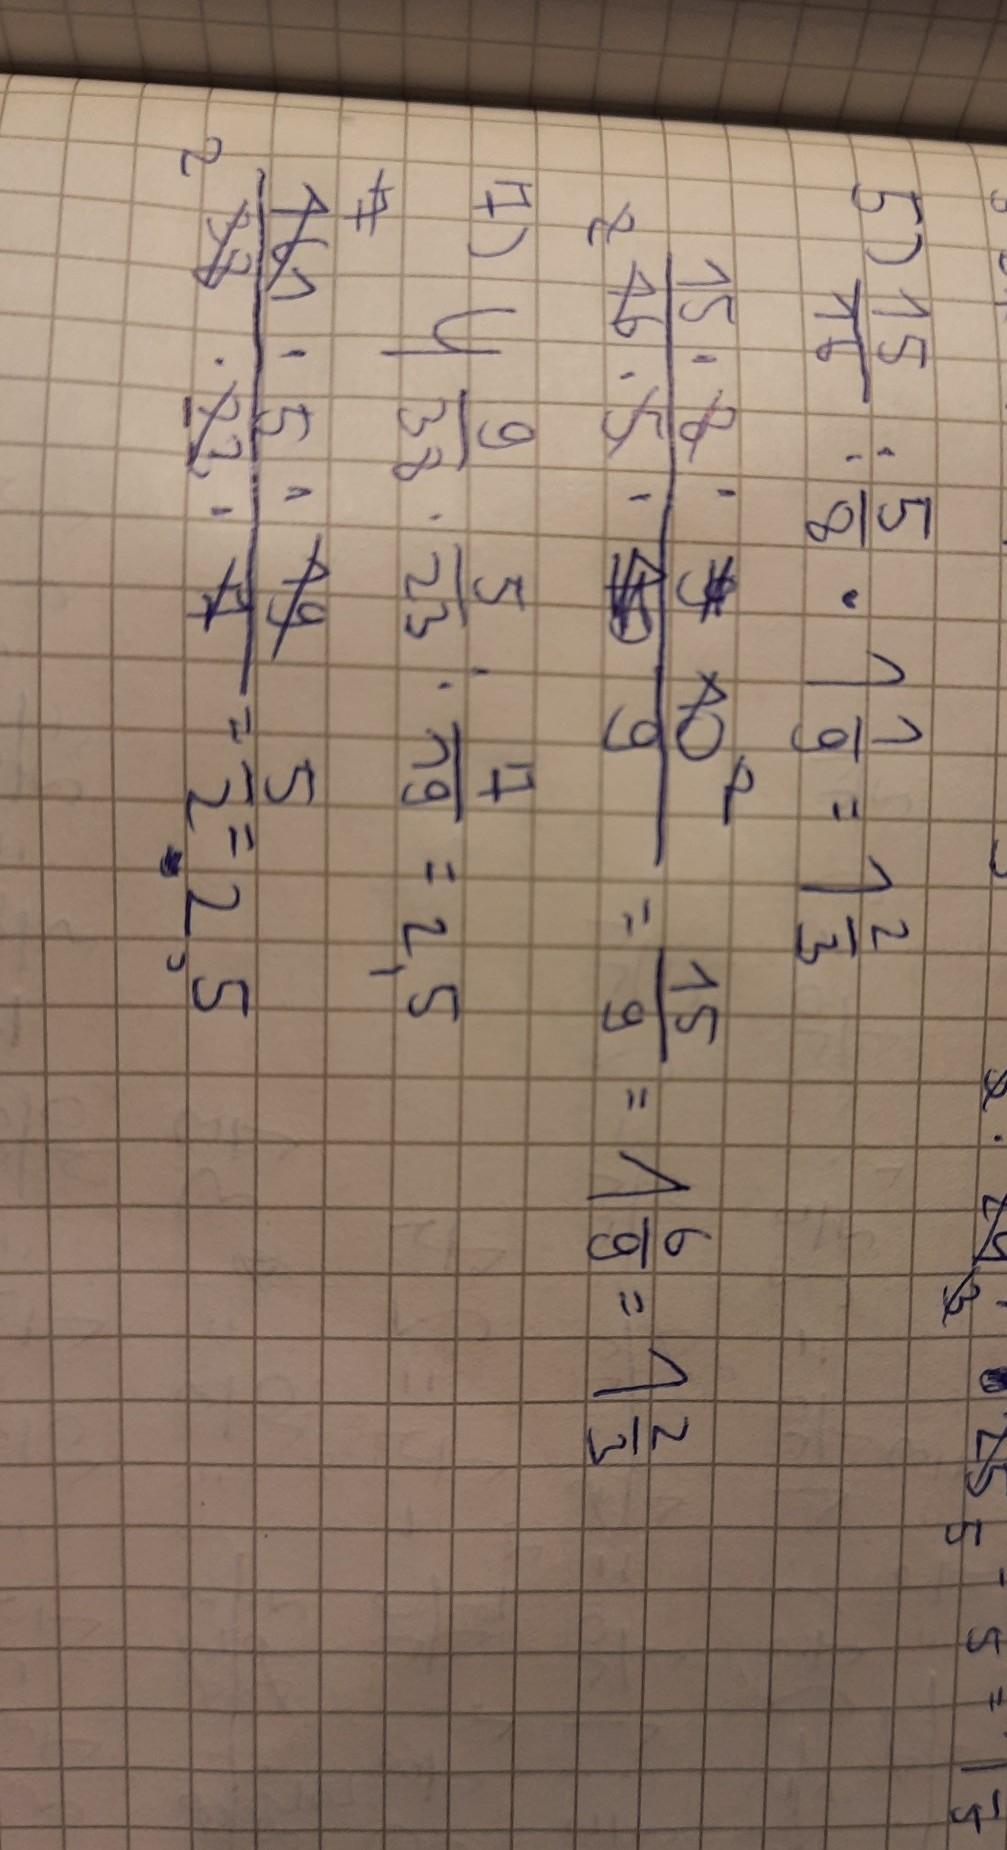 5) 15/16 : 5/8 · 1 1/9 = 1 2/3
15 · 8 · 10 2 / 2 16 · 5 · 9 = 15/9 = 1 6/9 = 1 2/3
7) 4 9/38 · 5/23 : 7/19 = 2,5
7 161 · 5 · 19 / 2 38 · 23 · 7 = 5/2 = 2,5